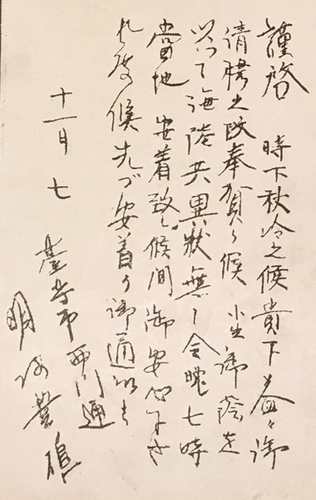 謹啓 時下秋冷之候貴下益々御
清勝之段奉賀り候 小生御蔭を
以つて海陸共異状無し今晩七時
當地安着致し候間御安心下さ
れ度候先づ安着の御通知まで
十一月七
市西門通
明